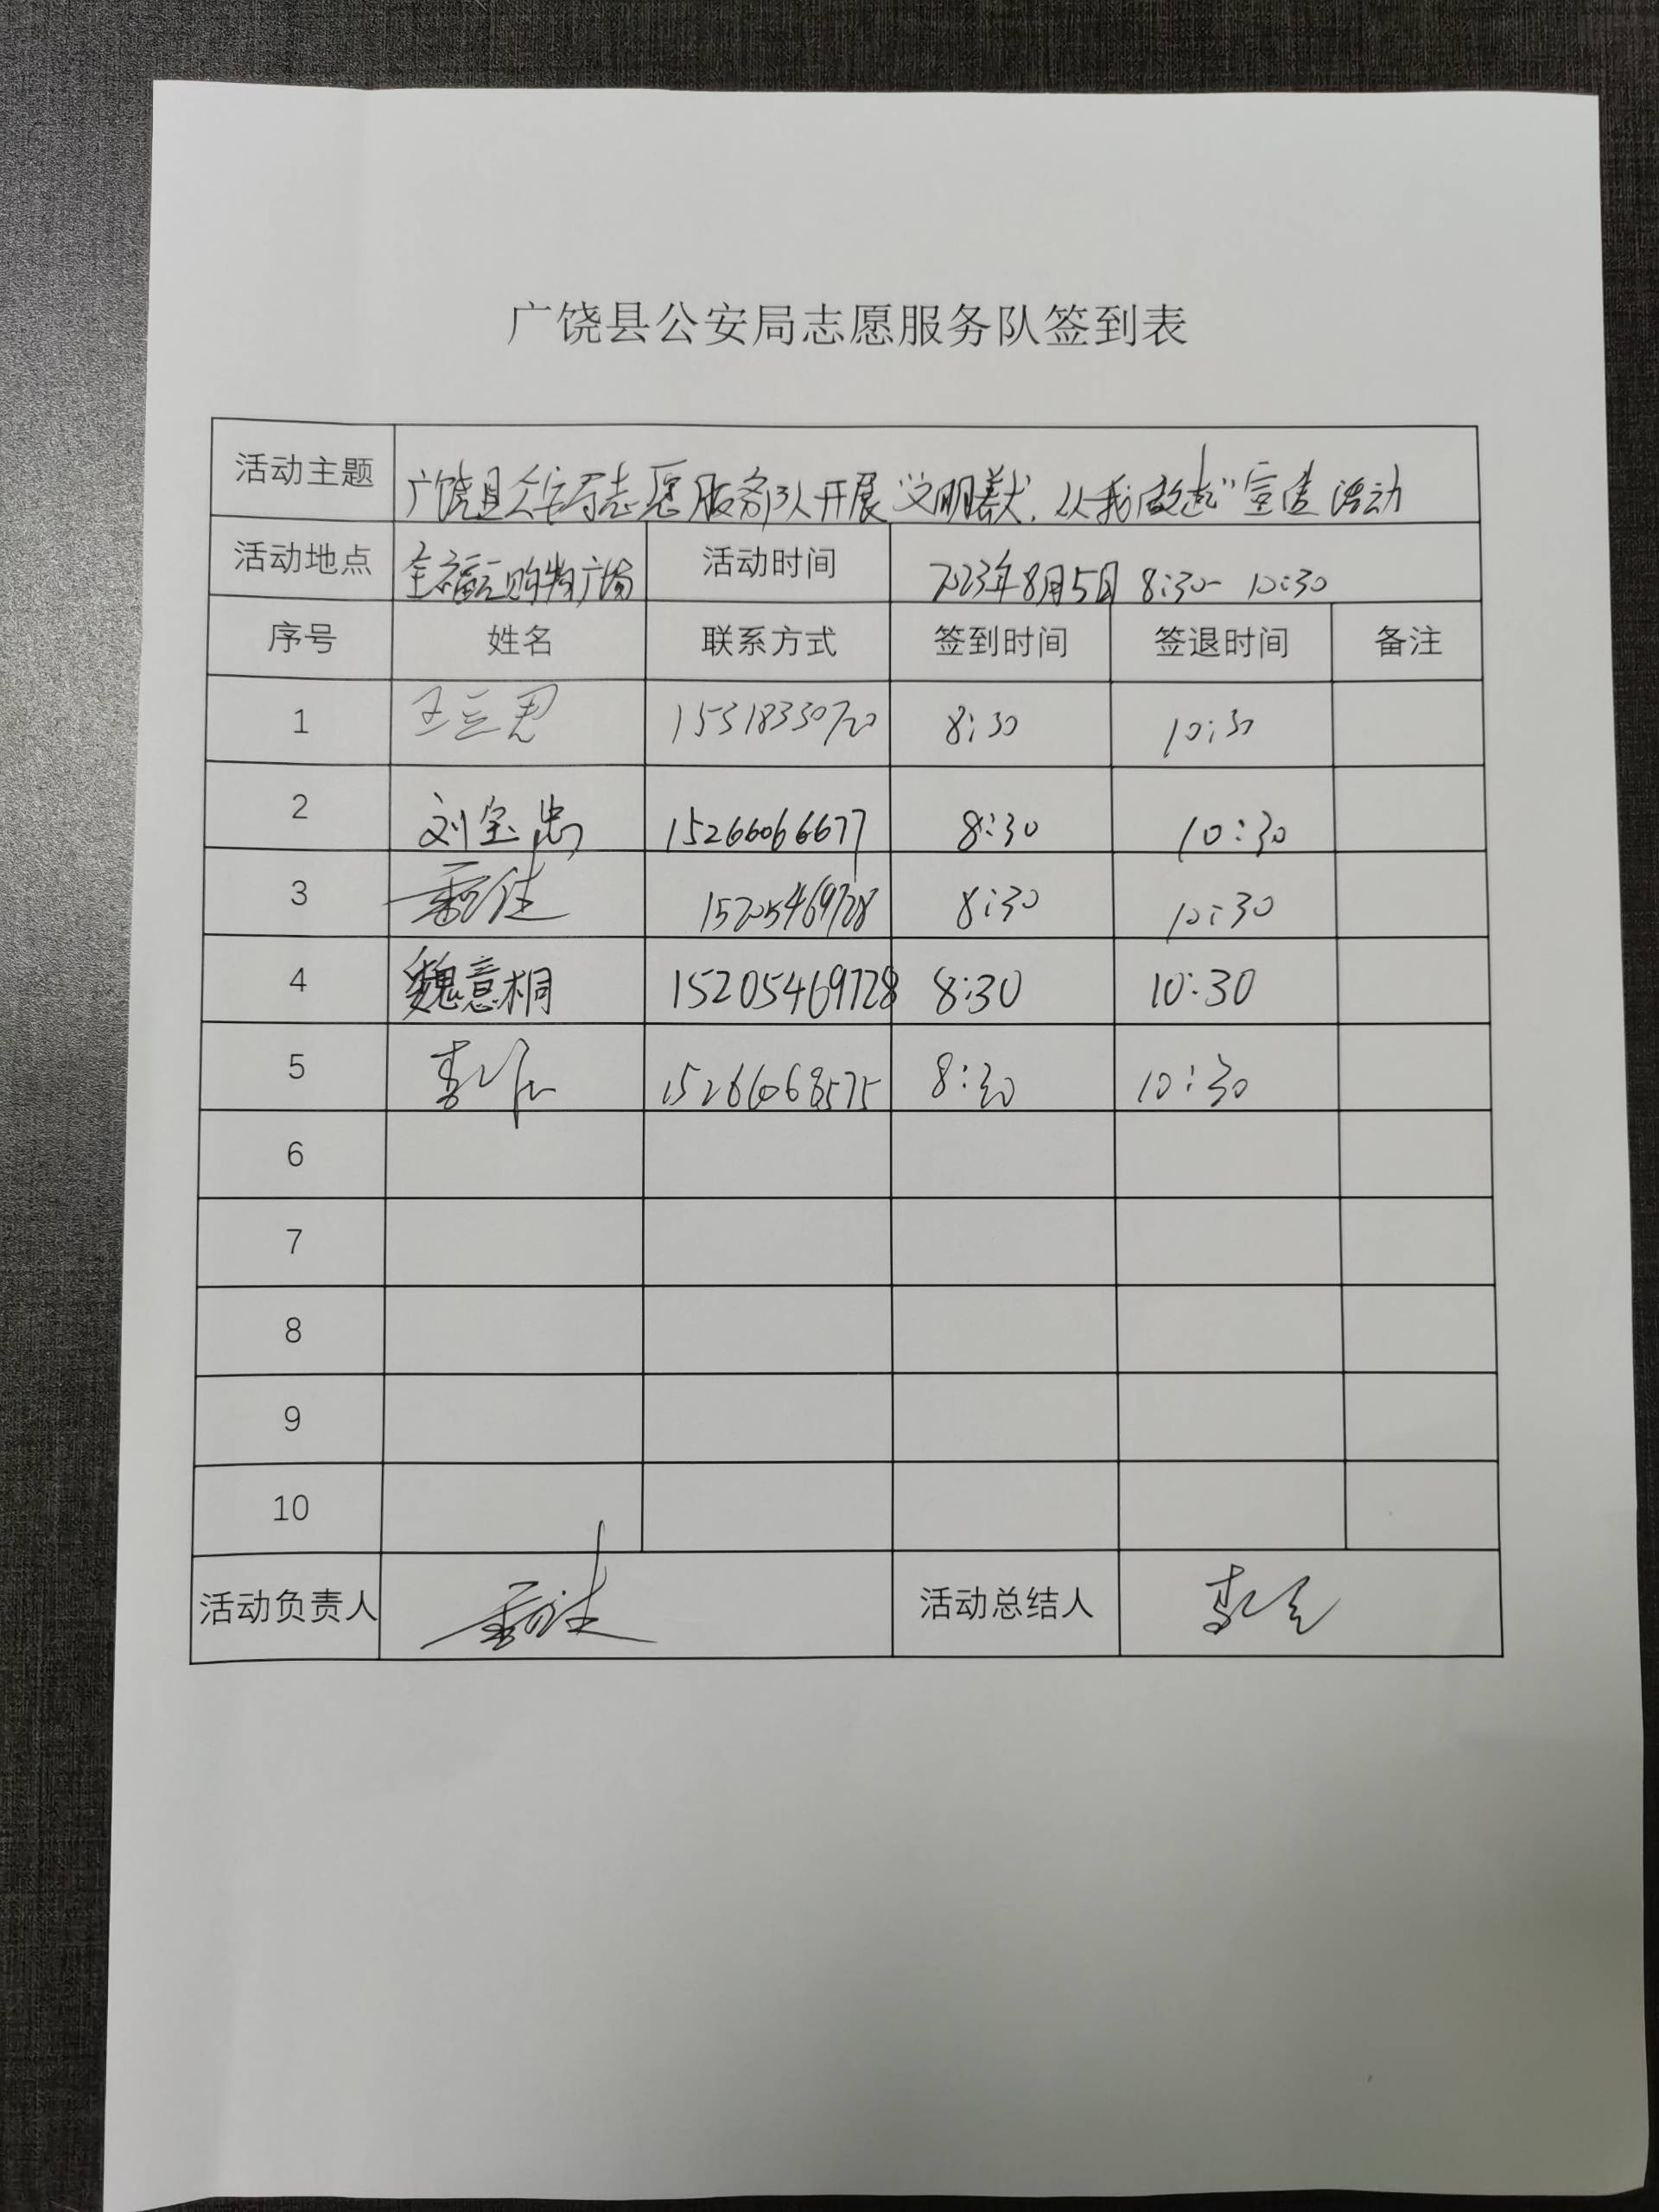 广饶县公安局志愿服务队签到表
活动主题 广饶县公安局志愿服务队开展“文明养犬,从我做起”宣传活动
活动地点 全福元购物广场 活动时间 2023年8月5日 8:30-10:30
序号 姓名 联系方式 签到时间 签退时间 备注
1 王立君 15318330720 8:30 10:30
2 刘宝忠 15266066677 8:30 10:30
3 15205469728 8:30 10:30
4 魏意桐 15205469728 8:30 10:30
5 15266068575 8:30 10:30
6
7
8
9
10
活动负责人 活动总结人